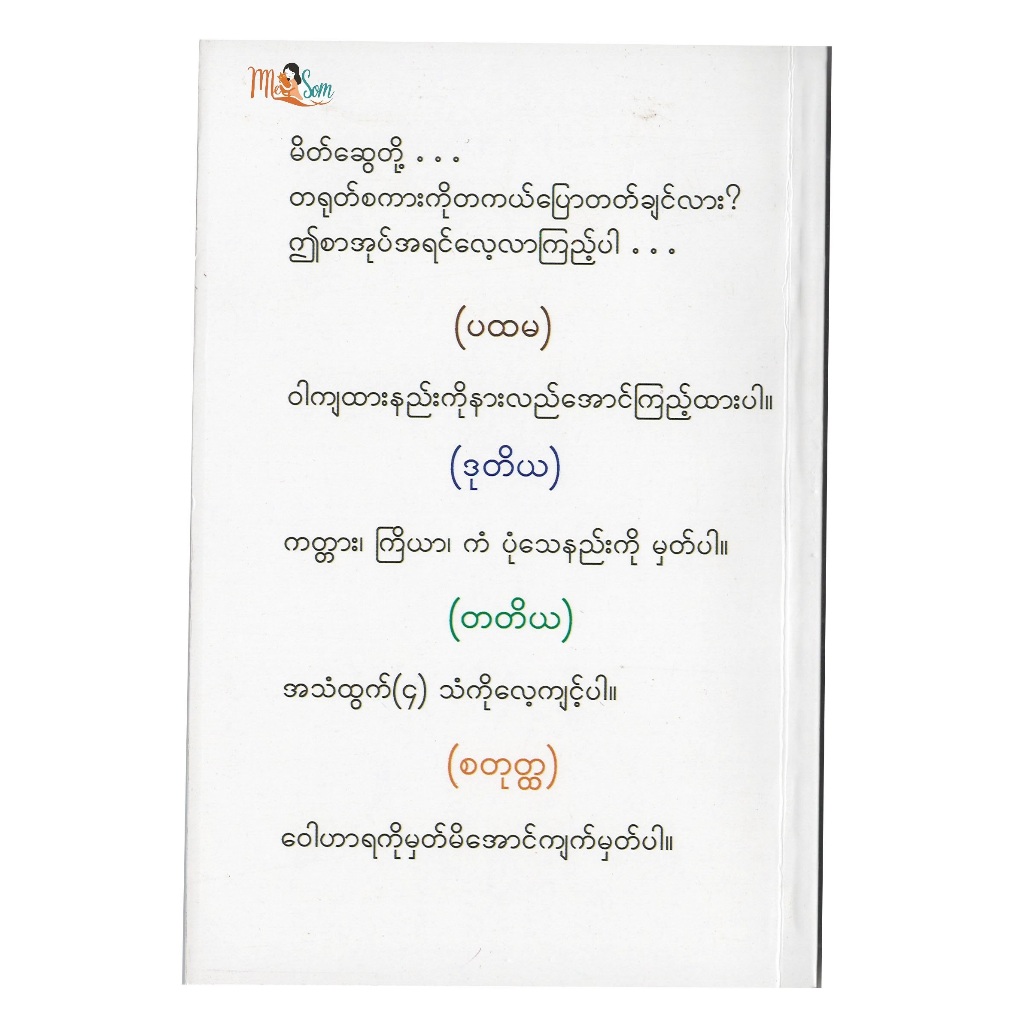 Me Som
မိတ်ဆွေတို့ . . .
တရုတ်စကားကိုတကယ်ပြောတတ်ချင်လား?
ဤစာအုပ်အရင်လေ့လာကြည့်ပါ . . .
(ပထမ)
ဝါကျထားနည်းကိုနားလည်အောင်ကြည့်ထားပါ။
(ဒုတိယ)
ကတ္တား၊ ကြိယာ၊ ကံ ပုံသေနည်းကို မှတ်ပါ။
(တတိယ)
အသံထွက်(၄) သံကိုလေ့ကျင့်ပါ။
(စတုတ္ထ)
ဝေါဟာရကိုမှတ်မိအောင်ကျက်မှတ်ပါ။